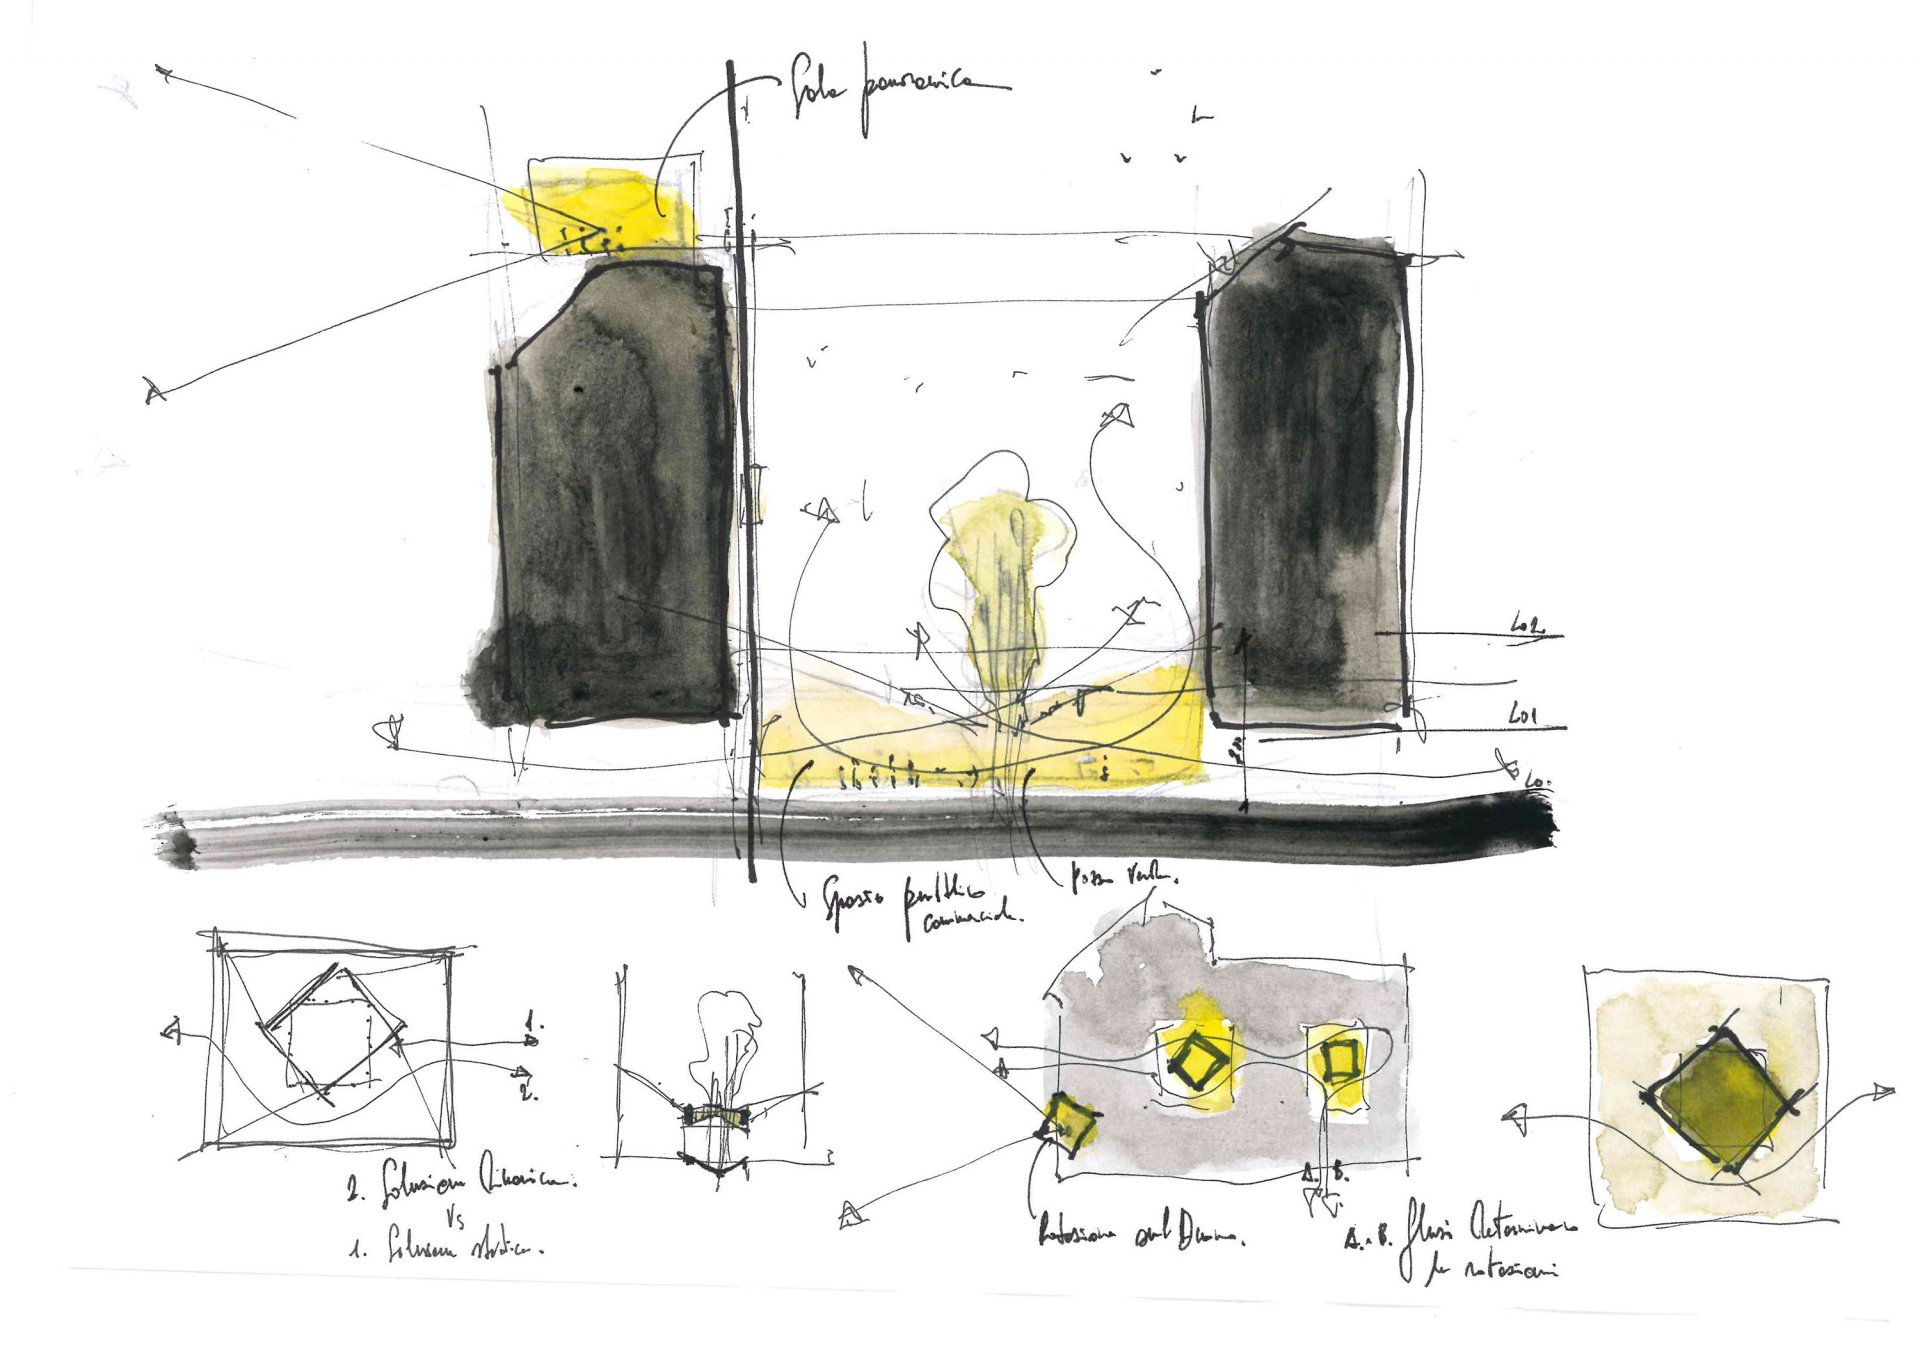 Sala panoramica
L02
L01
L0.
Spazio pubblico
commerciale.
pozzo verde.
1.
2.
2. Soluzione dinamica.
vs
1. Soluzione statica.
Rotazione sul Duomo.
A. B.
A. B. flussi determinano
le rotazioni